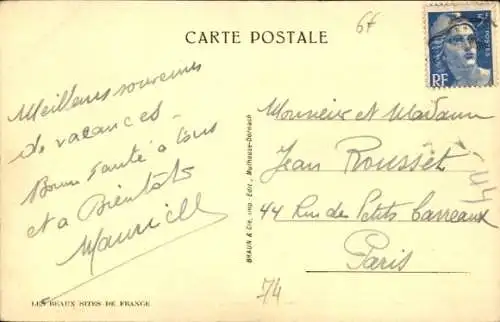 6f
CARTE POSTALE
POSTES
RF
Meilleurs souvenirs
de vacances -
Bonne santé à tous
et a Bientôt
Maurice
Monsieur et Madame
Jean Rousset
44 Rue des Petits Carreaux
Paris
44
74
BRAUN & Cie, imp. Édit., Mulhouse-Dornach
LES BEAUX SITES DE FRANCE